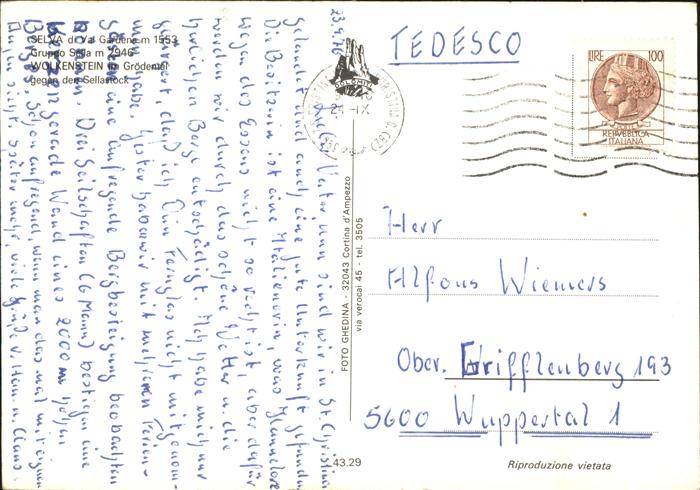 SELVA di Val Gardena m 1553
Gruppo Sella m 2946
WOLKENSTEIN im Grödental
gegen den Sellastock
23.9.76
Vater, nun sind wir in St. Christina
gelandet und auch eine gute Unterkunft gefunden.
Die Besitzerin ist eine Italienerin, was
wegen des Essens nicht so recht ist, aber dafür
werden wir durch das schöne Wetter u. die
herrlichen Berge entschädigt. Ich habe mich nur
geärgert, daß ich Dein Fernglas nicht mitgenom-
men habe. Gestern haben wir mit mehreren Ferien-
gästen eine aufregende Bergbesteigung beobachten
können. Drei Seilschaften (6 Mann) bestiegen eine
gerade Wand eines 2000 m hohen
Berges. Schon aufregend, wenn man das mal mit eignen
Augen sieht. später mehr viele Grüße v. Ham. u. Claus.
TEDESCO
DOLOMITI
24-IX
LIRE 100
REPVBBLICA
ITALIANA
FOTO GHEDINA - 32043 Cortina d'Ampezzo
via verocai 45 - tel. 3505
Herr
Alfons Wiemers
Ober. Grifflenberg 193
5600 Wuppertal 1
43.29
Riproduzione vietata